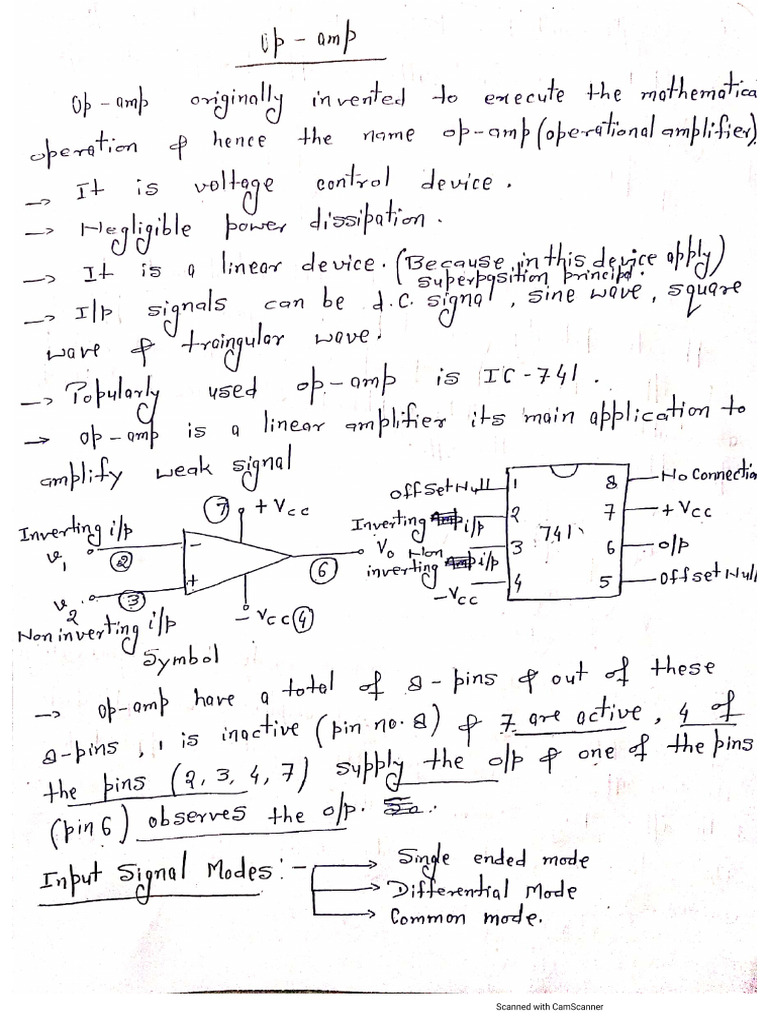 Op - amp
Op - amp originally invented to execute the mathematica
operation & hence the name op-amp (operational amplifier)
→ It is voltage control device.
→ Negligible power dissipation.
→ It is a linear device. (Because in this device apply)
superposition principal.
→ I/p signals can be d.c. signal, sine wave, square
wave & traingular wave.
→ Popularly used op-amp is IC-741.
→ op-amp is a linear amplifier its main application to
amplify weak signal
Inverting i/p
v1
2
−
7
+ Vcc
6
Vo
v2
3
+
− Vcc 4
Non inverting i/p
Symbol
offset Null 1
8 No Connectio
Inverting i/p 2
7 + Vcc
741
Non inverting i/p 3
6 o/p
−Vcc 4
5 offset Null
→ op-amp have a total of 8-pins & out of these
8-pins, 1 is inactive (pin no. 8) & 7 are active, 4 of
the pins (2, 3, 4, 7) supply the o/p & one of the pins
(pin 6) observes the o/p.
Input Signal Modes:-
Single ended mode
Differential Mode
Common mode.
Scanned with CamScanner